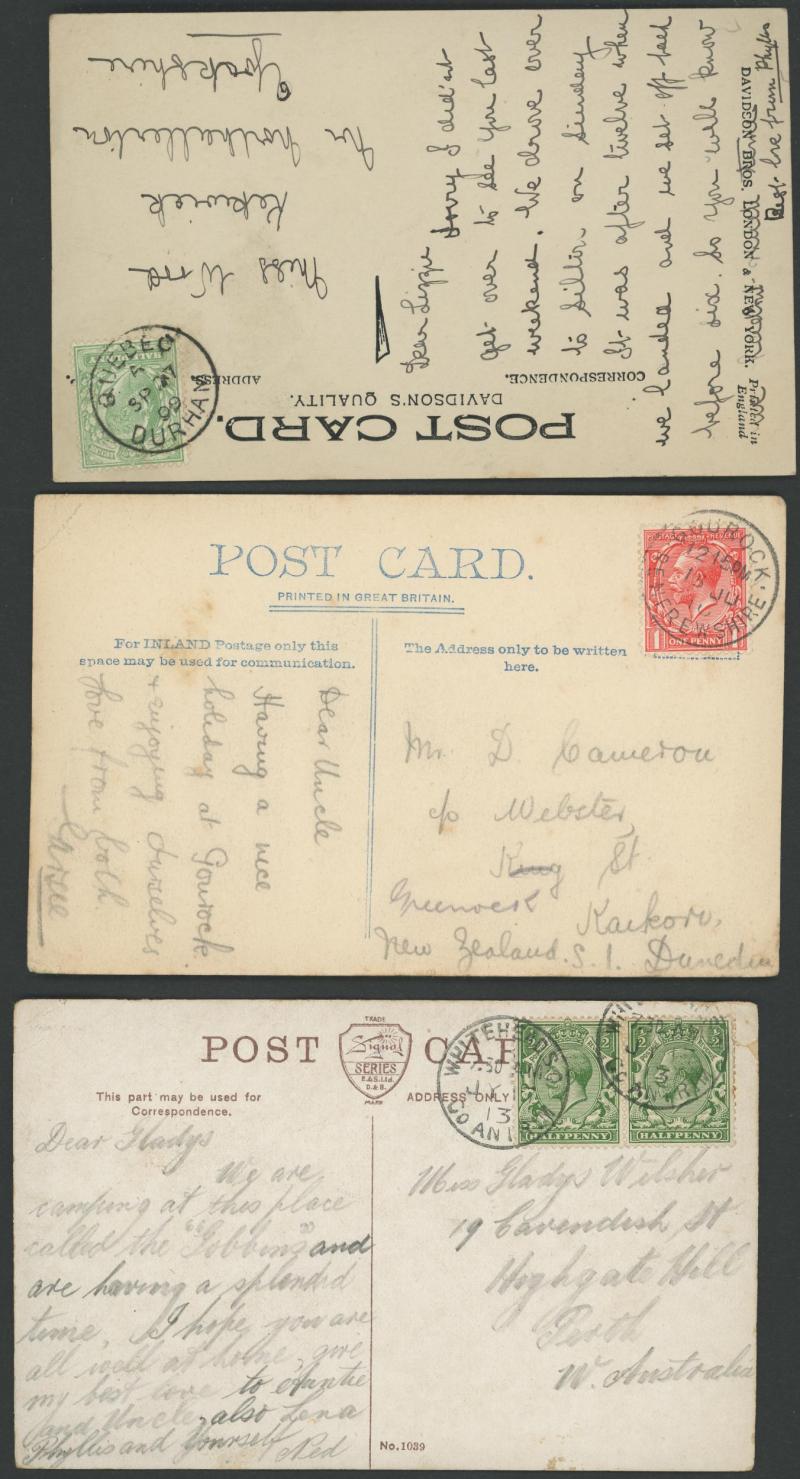 POST CARD.
DAVIDSON'S QUALITY.
ADDRESS.
CORRESPONDENCE.
QUEBEC
A
SP 27
09
DURHAM
Miss Wood
Kekwick
Nr Northallerton
Yorkshire
Dear Lizzie
Sorry I did'nt
get over to see you last
weekend. We drove over
to Silton on Sunday
It was after twelve when
we landed and we set off back
before six. So you will know
Best love from Phyllis
DAVIDSON BROS. LONDON & NEW YORK. Printed in
England
POST CARD.
PRINTED IN GREAT BRITAIN.
For INLAND Postage only this
space may be used for communication.
The Address only to be written
here.
GOUROCK.
12 15PM
JU
RENFREWSHIRE
POSTAGE REVENUE
ONE PENNY
Dear Uncle
Having a nice
holiday at Gourock
& enjoying ourselves
love from both
Mr. D. Cameron
c/o Webster,
King St
Greenock
Kaikorai,
New Zealand. S. I. Dunedin
POST CAR
TRADE
Signal
SERIES
E.&S. Ltd.
D.& B.
MARK
This part may be used for
Correspondence.
ADDRESS ONLY
WHITEHEAD
7.30 AM
JY
13
CO ANTRIM
HALFPENNY
HALFPENNY
Dear Gladys
We are
camping at this place
called the "Gobbins" and
are having a splendid
time. I hope you are
all well at home, give
my best love to Auntie
and Uncle, also Lena
Phyllis and Yourself Ned
Miss Gladys Wilsher
19 Cavendish St
Highgate Hill
Perth
W. Australia
No. 1039